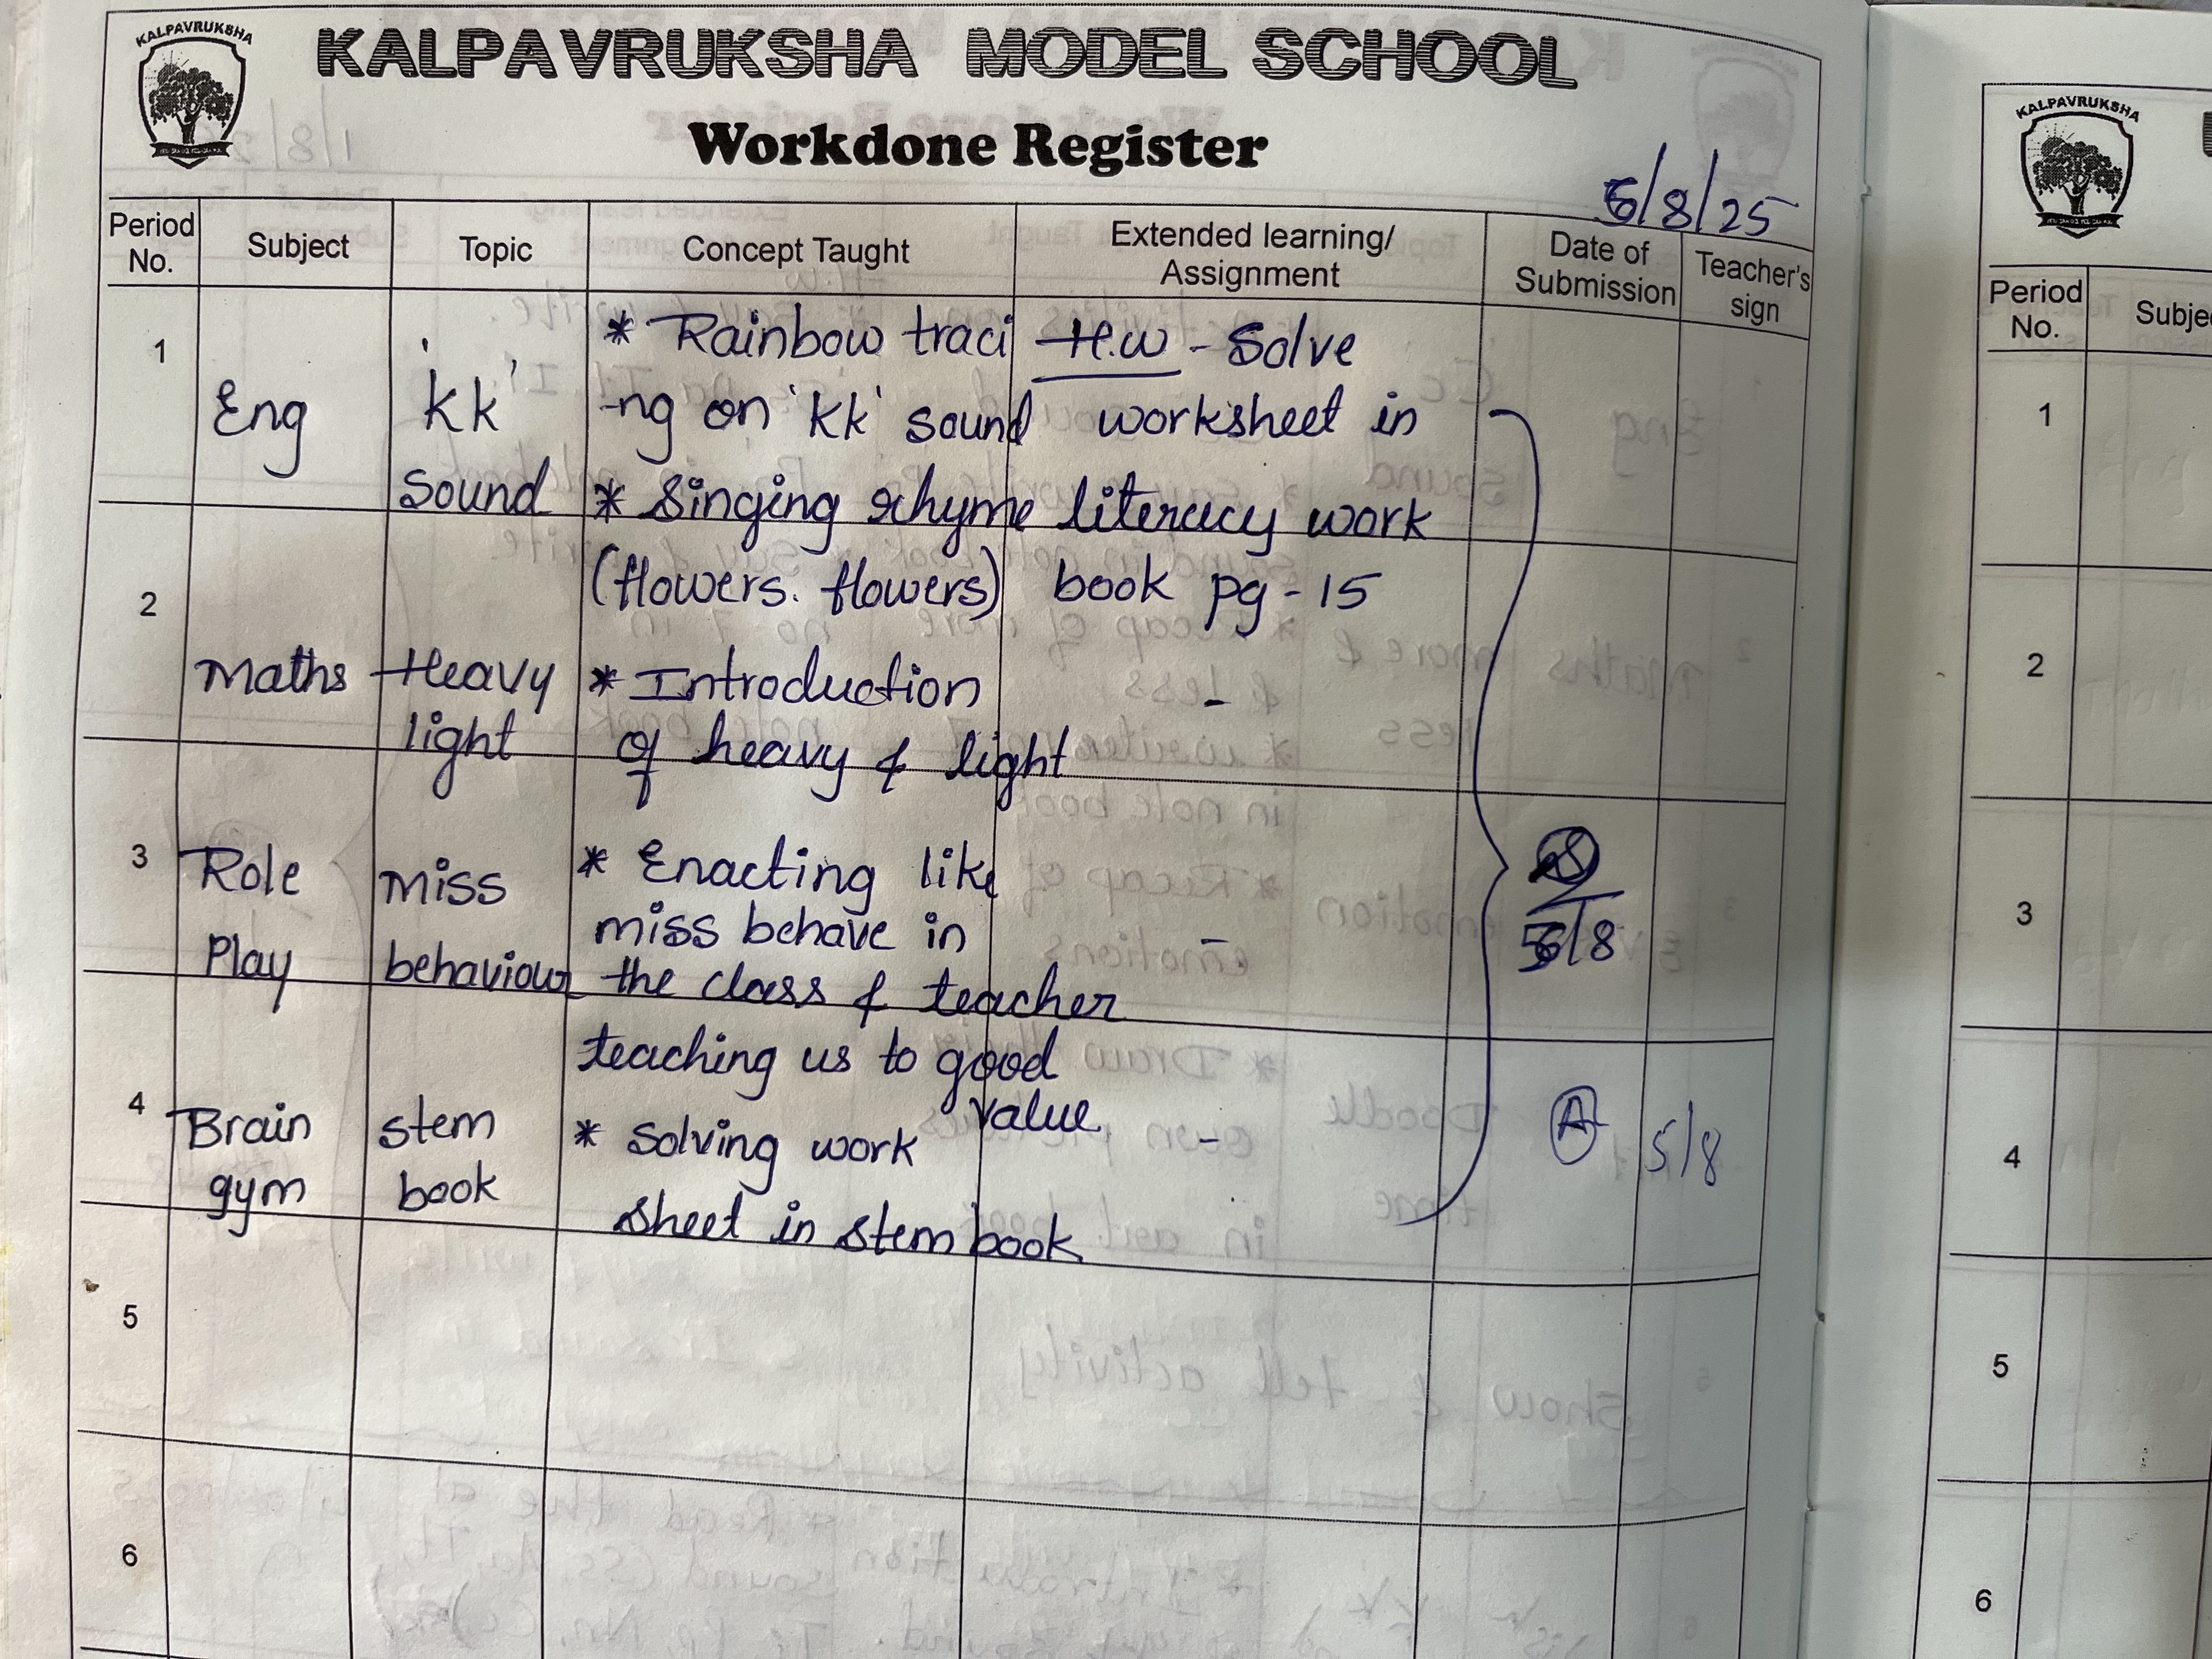 KALPAVRUKSHA
KALPAVRUKSHA MODEL SCHOOL
Workdone Register
5/8/25
Period No. Subject Topic Concept Taught Extended learning/ Assignment Date of Submission Teacher's sign
1 Eng 'kk' sound
* Rainbow traci
-ng on 'kk' sound
* Singing rhyme
(flowers. flowers)
H.W - Solve
worksheet in
literacy work
book pg - 15
2 Maths Heavy light
* Introduction
of heavy & light
-
3 Role Play miss behaviour
* Enacting like
miss behave in
the class & teacher
teaching us to good
value
-
5/8
4 Brain gym stem book
* solving work
sheet in stem book
-
A 5/8
5
6
KALPAVRUKSHA
Period No. Subje
1
2
3
4
5
6